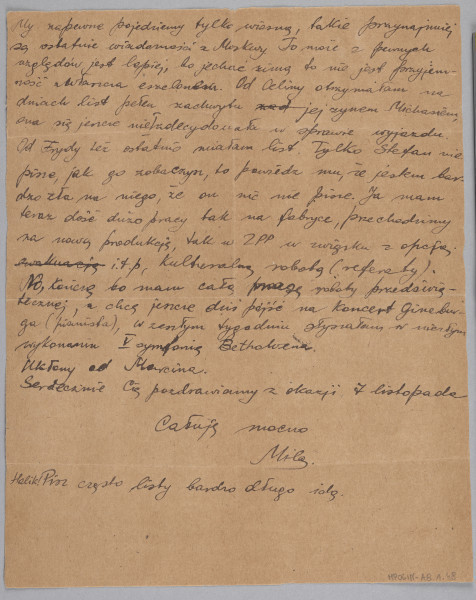 My napewno pojedziemy tylko wiosną, takie przynajmniej
są ostatnie wiadomości z Moskwy. To może z pewnych
względów jest lepiej, bo jechać zimą to nie jest przyjem-
ność zwłaszcza eszelonem. Od Celiny otrzymałam na
dniach list pełen zachwytu nad jej synem Michasiem,
ona się jeszcze niezdecydowała w sprawie wyjazdu.
Od Frydy też ostatnio miałam list. Tylko Stefan nie
pisze, jak go zobaczysz, to powiedz mu, że jestem bar-
dzo zła na niego, że on nic nie pisze. Ja mam
teraz dość dużo pracy tak na fabryce, przechodzimy
na nową produkcję, tak w ZPP w związku z opcją,
i.t.p., kulturalną robotą (referaty).
No, kończę bo mam całą roboty przedświą-
tecznej, a chcę jeszcze dziś pójść na koncert Ginzbur-
ga (pianista), w zeszłym tygodniu słyszałam w
wykonaniu V symfonię Bethowena.
Ukłony od Marcina.
Serdecznie Cię pozdrawiamy z okazji 7 listopada
Całuję mocno
Mila.
Halik/Pisz często listy bardzo długo idą.
MPOLIN-A8.1.48